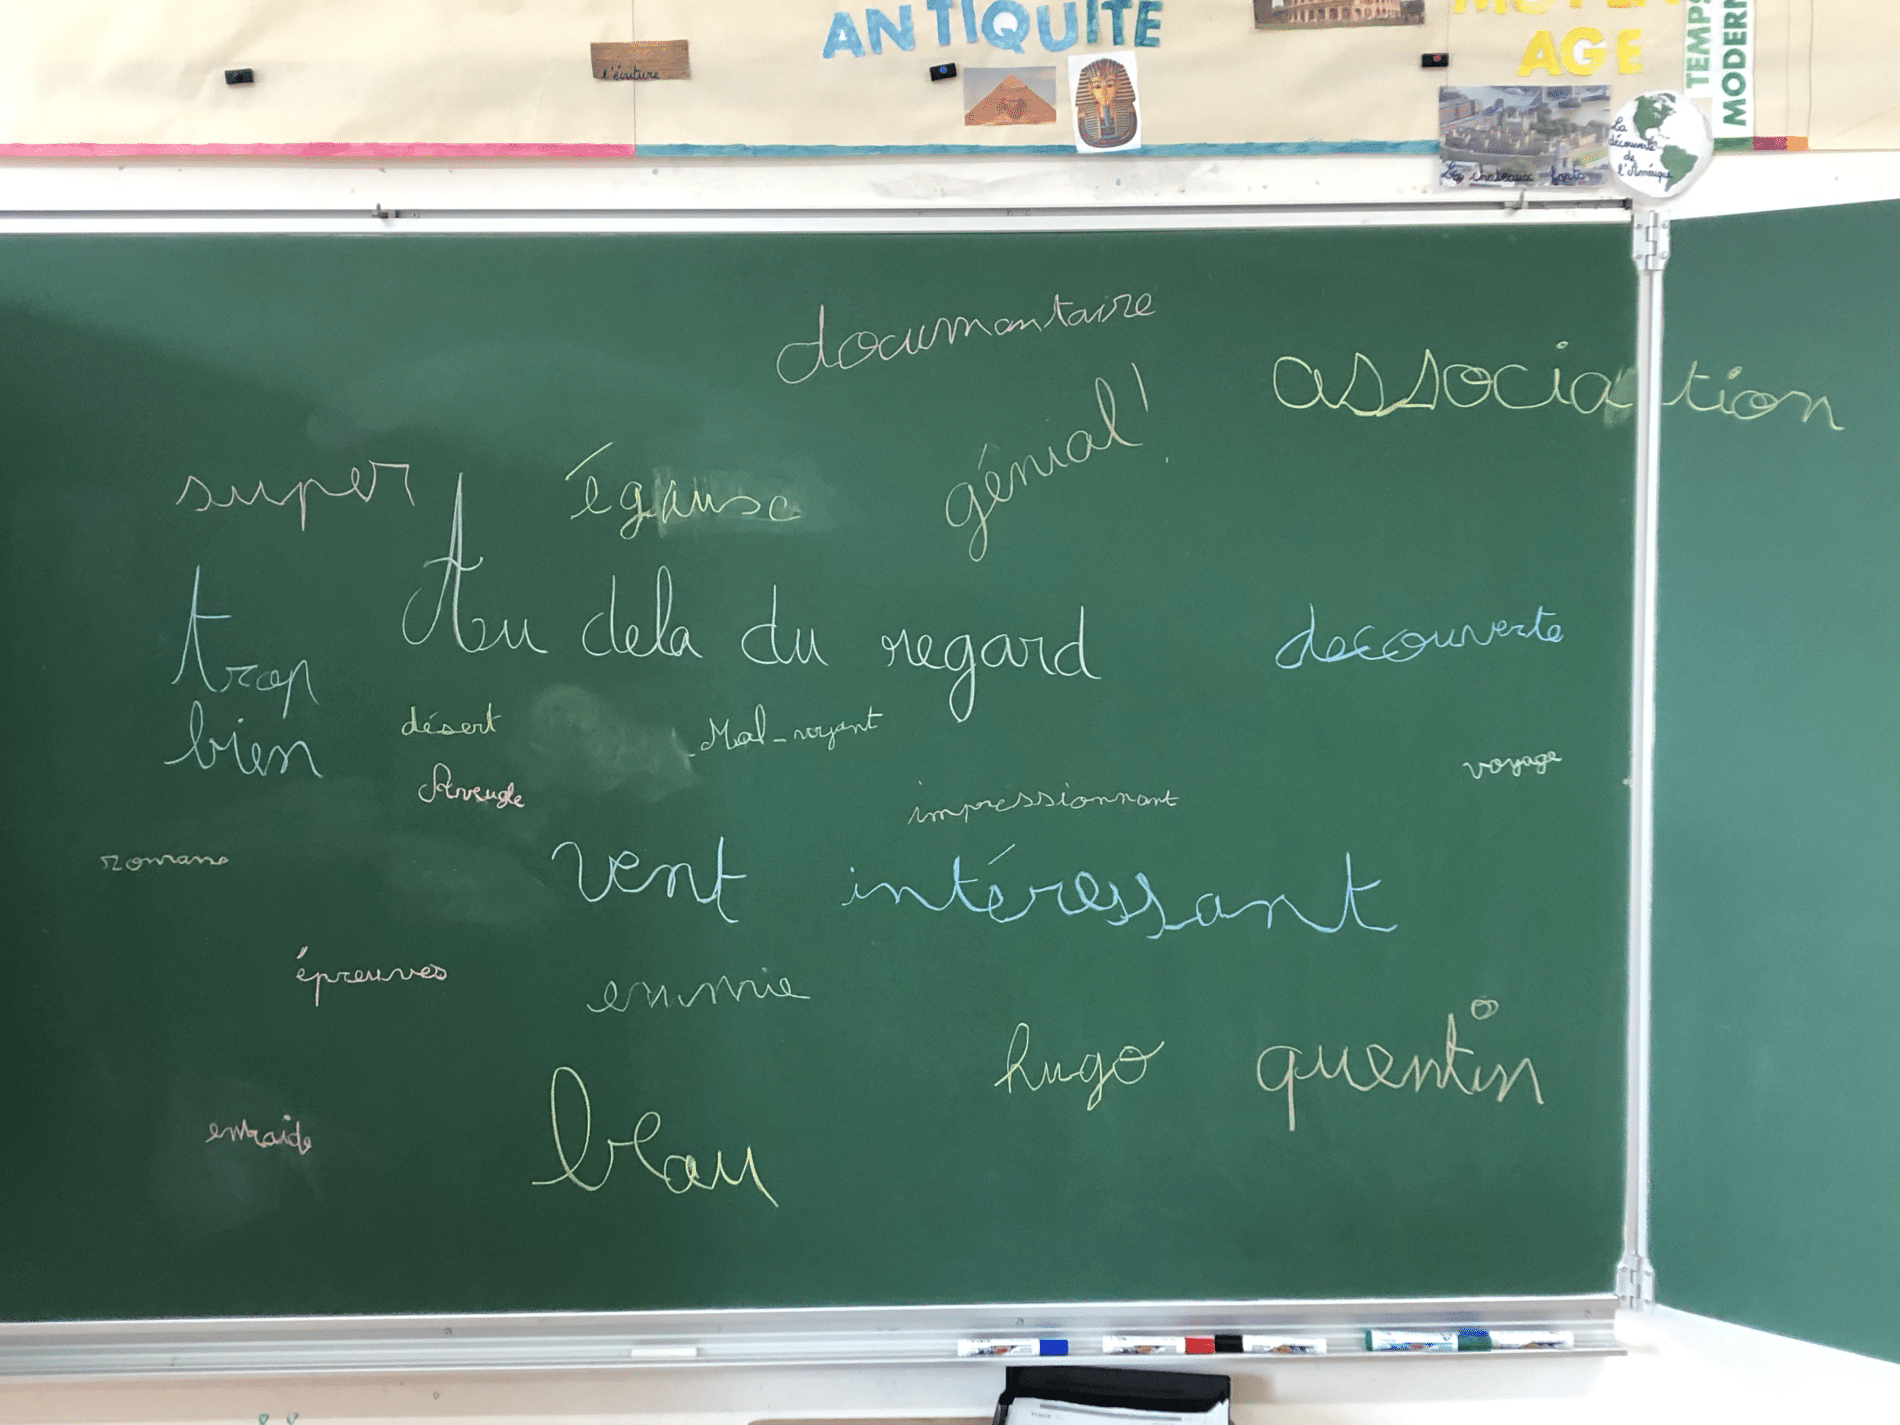 ANTIQUITE
MOYEN
AGE
TEMPS
MODERN
l'écriture
Les chateaux forts
La
découverte
de
l'Amérique
documantaire
association
génial!
super
Au dela du regard
découverte
trop
bien
désert
Mal-voyant
voyage
Aveugle
impressionnant
vent intéressant
épreuves
hugo quentin
entraide
beau